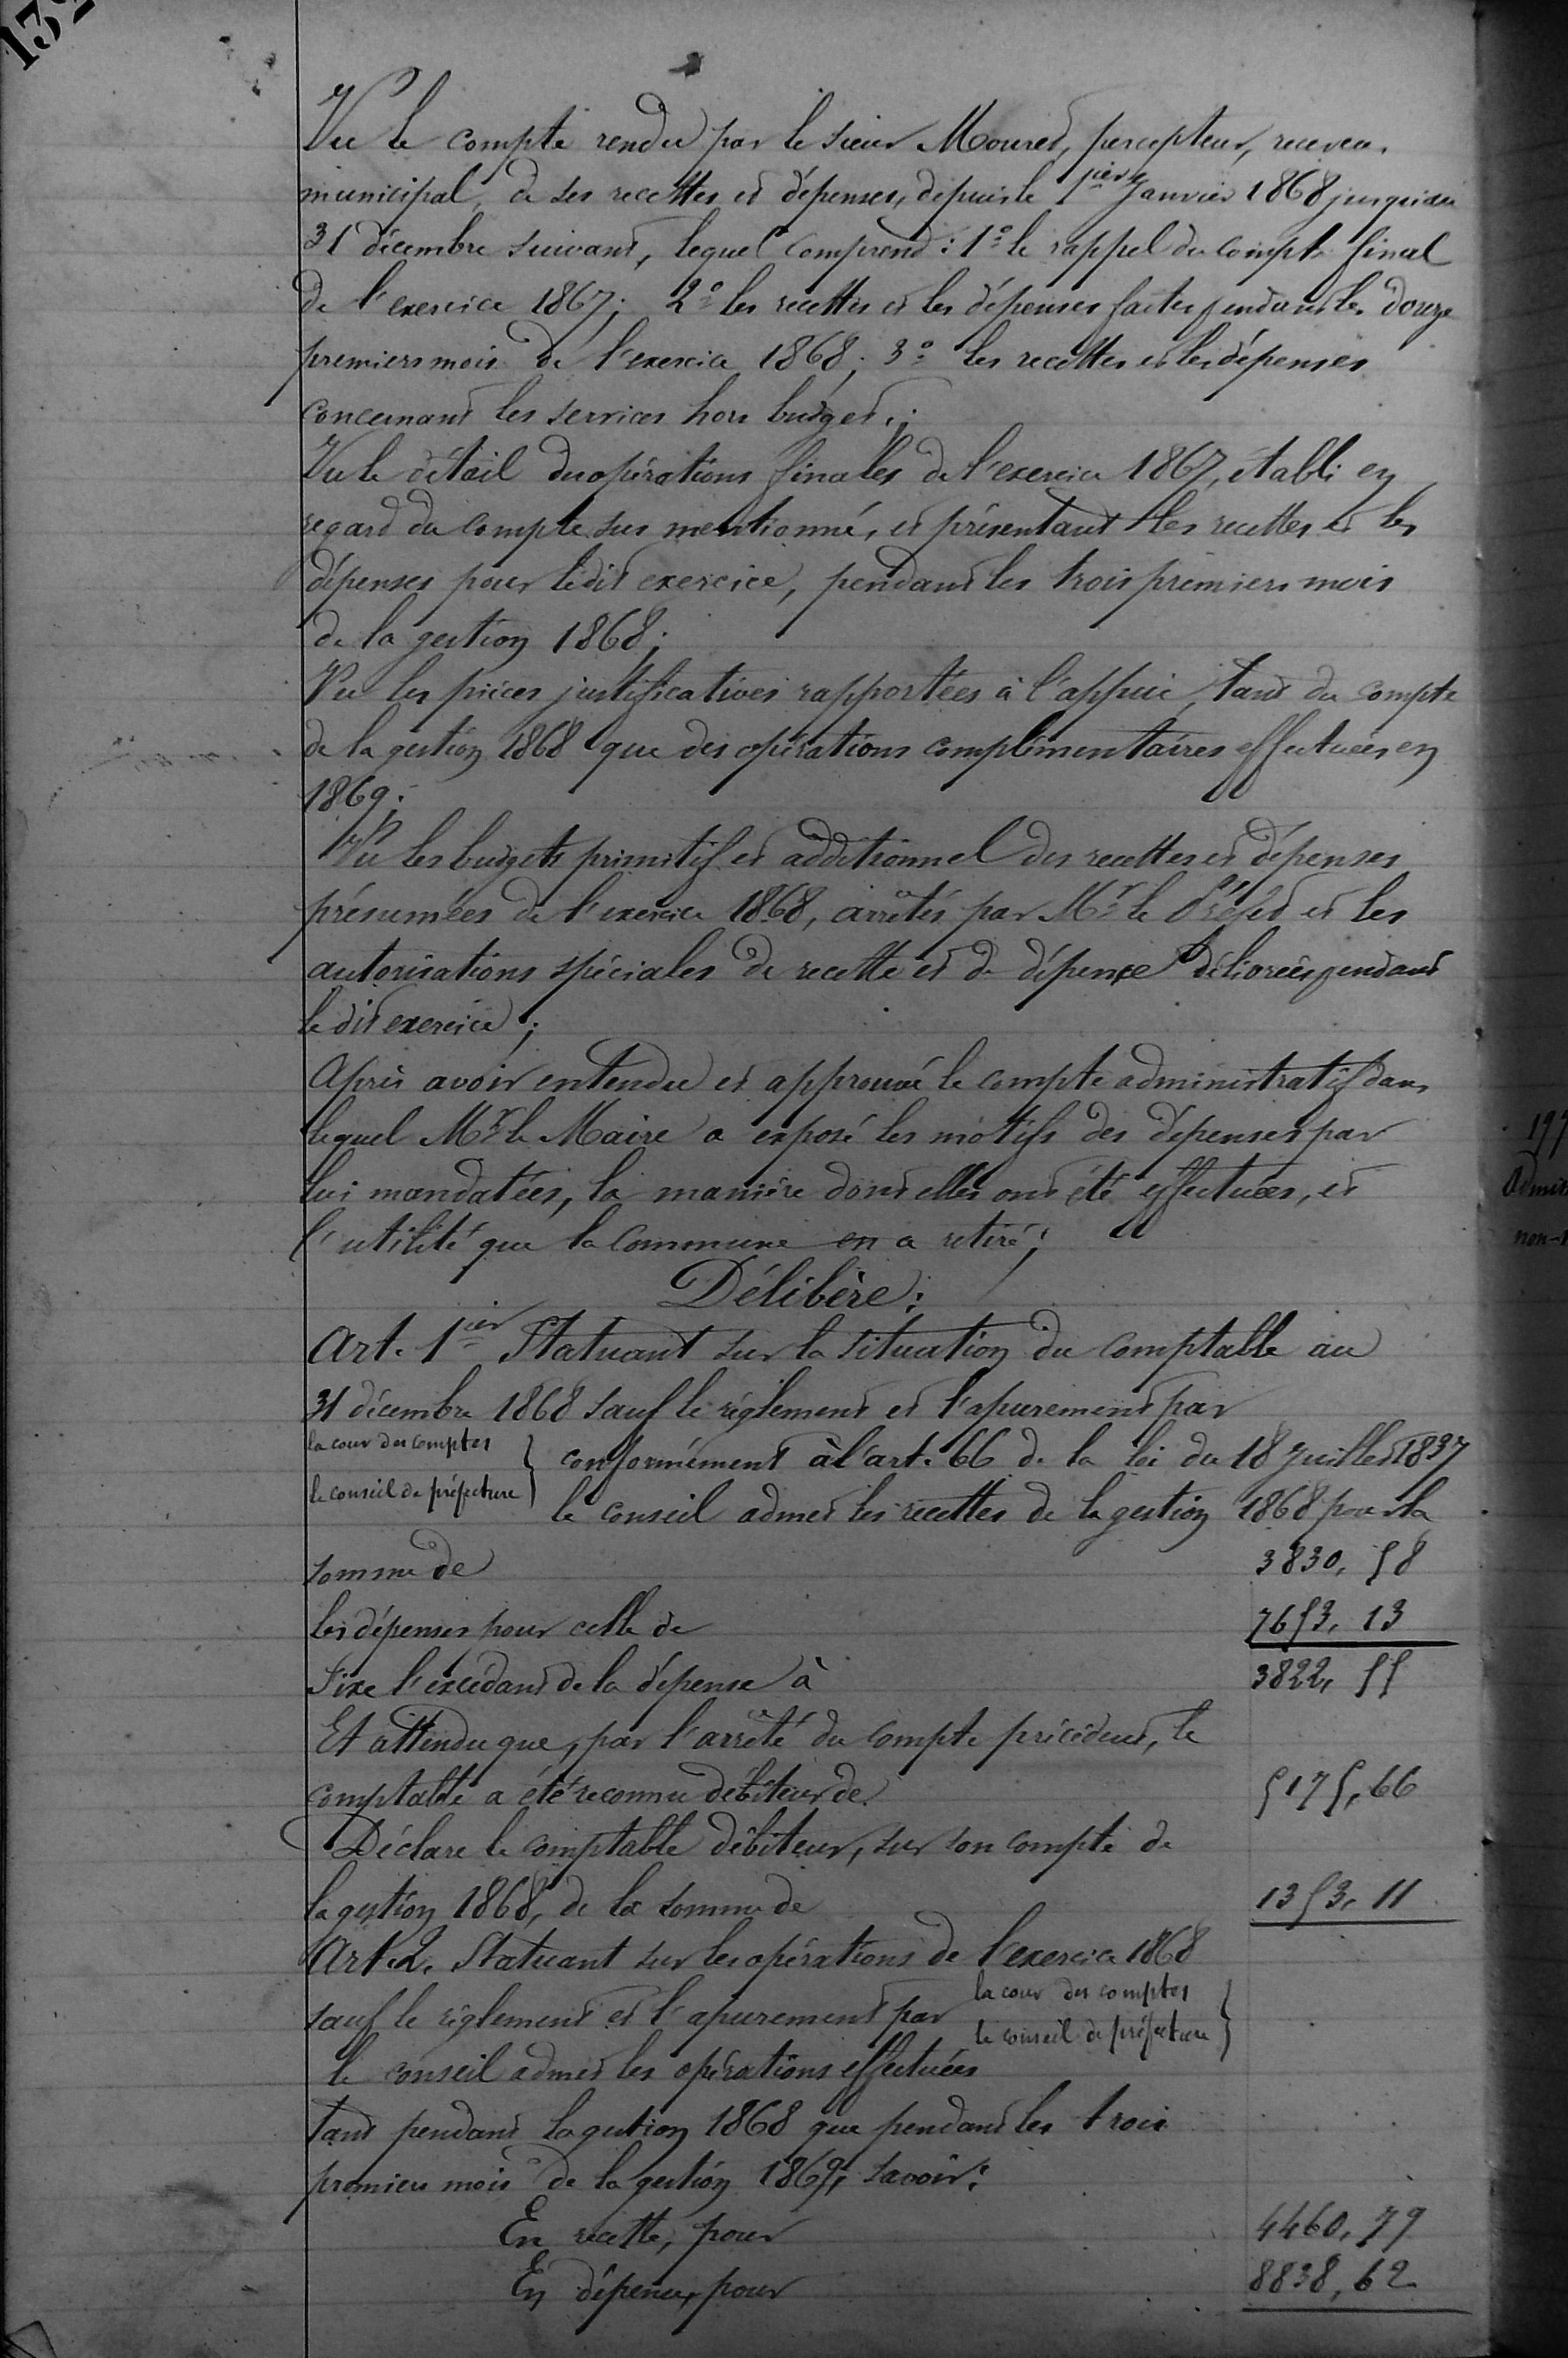 132
Vu le compte rendu par le sieur Mouret, percepteur, receveur
municipal, de ses recettes et dépenses, depuis le 1er Janvier 1868 jusqu'au
31 décembre suivant, lequel comprend : 1° le rappel du compte final
de l'exercice 1867; 2° les recettes et les dépenses faites pendant les douze
premiers mois de l'exercice 1868; 3° les recettes et les dépenses
concernant les services hors budget;
Vu le détail des opérations finales de l'exercice 1867, établi en
regard du compte sus mentionné, et présentant les recettes et les
dépenses pour ledit exercice, pendant les trois premiers mois
de la gestion 1868;
Vu les pièces justificatives rapportées à l'appui, tant du compte
de la gestion 1868 que des opérations complémentaires effectuées en
1869;
Vu les budgets primitif et additionnel des recettes et dépenses
présumées de l'exercice 1868, arrêtés par Mr le Préfet et les
autorisations spéciales de recette et de dépense délivrées pendant
le dit exercice;
Après avoir entendu et approuvé le compte administratif dans
lequel Mr le Maire a exposé les motifs des dépenses par
lui mandatées, la manière dont elles ont été effectuées, et
l'utilité que la commune en a retiré;
Délibère:
Art. 1er Statuant sur la situation du comptable au
31 décembre 1868 sauf le règlement et l'apurement par
la cour des comptes
le conseil de préfecture } conformément à l'art. 66 de la loi du 18 Juillet 1837
le conseil admet les recettes de la gestion 1868 pour la
somme de 3830, 58
les dépenses pour celle de 7653, 13
Fixe l'excédant de la dépense à 3822, 55
Et attendu que, par l'arrêté du compte précédent, le
comptable a été reconnu débiteur de 5175, 66
Déclare le comptable débiteur, sur son compte de
la gestion 1868, de la somme de 1353, 11
Art. 2. Statuant sur les opérations de l'exercice 1868
sauf le règlement et l'apurement par la cour des comptes
le conseil de préfecture }
le conseil admet les opérations effectuées
tant pendant la gestion 1868 que pendant les trois
premiers mois de la gestion 1869, savoir:
En recette, pour 4460, 79
En dépense, pour 8838, 62